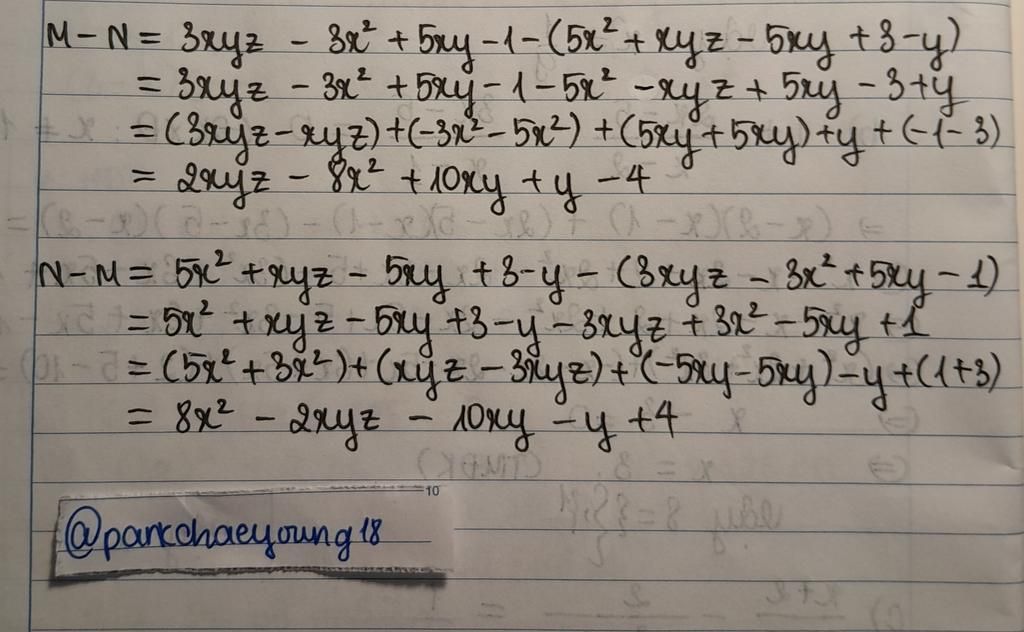 M - N = 3xyz - 3x² + 5xy - 1 - (5x² + xyz - 5xy + 3 - y)
= 3xyz - 3x² + 5xy - 1 - 5x² - xyz + 5xy - 3 + y
= (3xyz - xyz) + (-3x² - 5x²) + (5xy + 5xy) + y + (-1 - 3)
= 2xyz - 8x² + 10xy + y - 4
N - M = 5x² + xyz - 5xy + 3 - y - (3xyz - 3x² + 5xy - 1)
= 5x² + xyz - 5xy + 3 - y - 3xyz + 3x² - 5xy + 1
= (5x² + 3x²) + (xyz - 3xyz) + (-5xy - 5xy) - y + (1 + 3)
= 8x² - 2xyz - 10xy - y + 4
10
@parkchaeyoung18